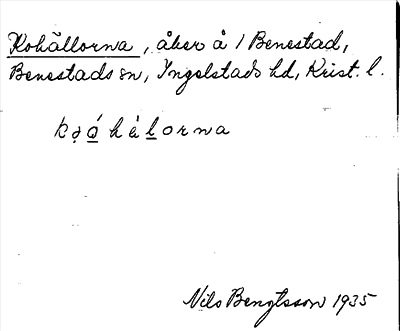 Kohällorna, åker å 1 Benestad,
Benestads sn, Ingelstads hd, Krist. l.
kọó̲hàl̲orna
Nils Bengtsson 1935